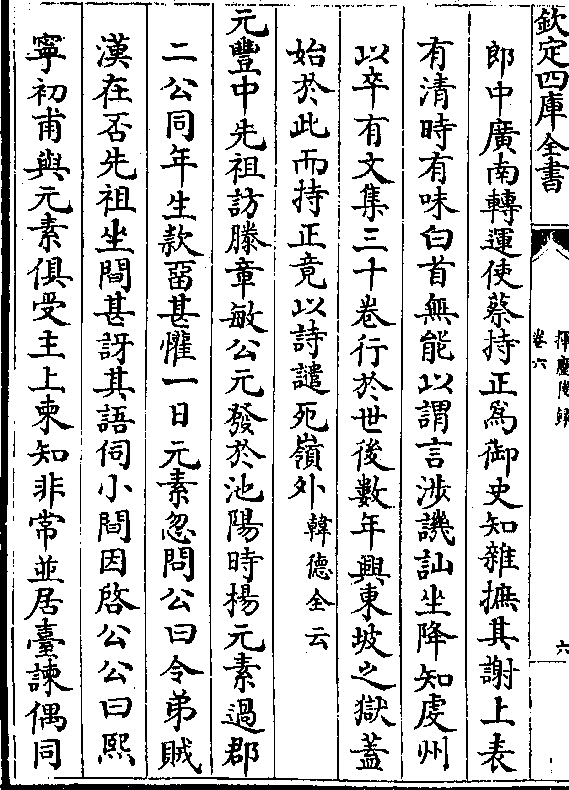 欽定四庫全書
揮麈後録
卷六
六
郎中廣南轉運使蔡持正為御史知雜摭其謝上表
有清時有味白首無能以謂言涉譏訕坐降知䖍州
以卒有文集三十卷行於世後數年興東坡之獄葢
始於此而持正竟以詩譴死嶺外韓德全云
元豐中先祖訪滕章敏公元發於池陽時楊元素過郡
二公同年生款㽞甚懽一日元素忽問公曰令弟賊
漢在否先祖坐間甚訝其語伺小間因啓公公曰熙
寧初甫與元素俱受主上柬知非常並居臺諫偶同